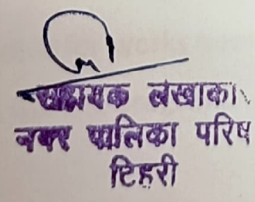 सहायक लेखाका
नगर पालिका परिष
टिहरी